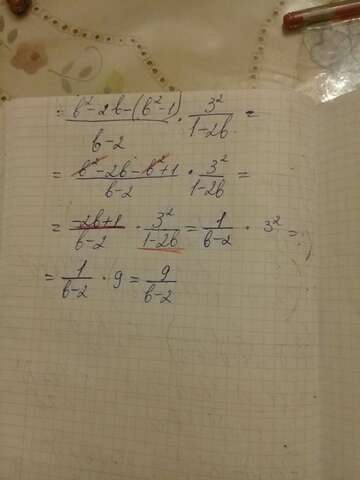 = (b² - 2b - (b² - 1))/(b - 2) · 3²/(1 - 2b) =
= (b² - 2b - b² + 1)/(b - 2) · 3²/(1 - 2b) =
= (-2b + 1)/(b - 2) · 3²/(1 - 2b) = 1/(b - 2) · 3² =
= 1/(b - 2) · 9 = 9/(b - 2)